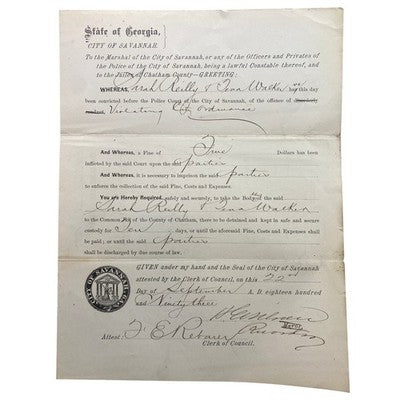 State of Georgia,
CITY OF SAVANNAH.
To the Marshal of the City of Savannah, or any of the Officers and Privates of
the Police of the City of Savannah, being a lawful Constable thereof, and
to the Jailor of Chatham County—GREETING:
WHEREAS, Sarah Reilly & Lena Walker this day
been convicted before the Police Court of the City of Savannah, of the offence of
Violating City ordinance
And Whereas, a Fine of Five Dollars has been
inflicted by said Court upon the said parties
And Whereas, it is necessary to imprison the said parties
to enforce the collection of the said Fine, Costs and Expenses.
You are Hereby Required, safely and securely, to take the Bod the said
Sarah Reilly & Lena Walker
to the Common Jail of the County of Chatham, there to be detained and kept in safe and secure
custody for Ten days, or until the aforesaid Fine, Costs and Expenses shall
be paid; or until the said parties
shall be discharged by due course of law.
GIVEN under my hand and the Seal of the City of Savannah
attested by the Clerk of Council, on this 22d
Day of September A. D. eighteen hundred
and Ninety three
CITY OF SAVANNAH
Attest F E Rebarer
Clerk of Council.